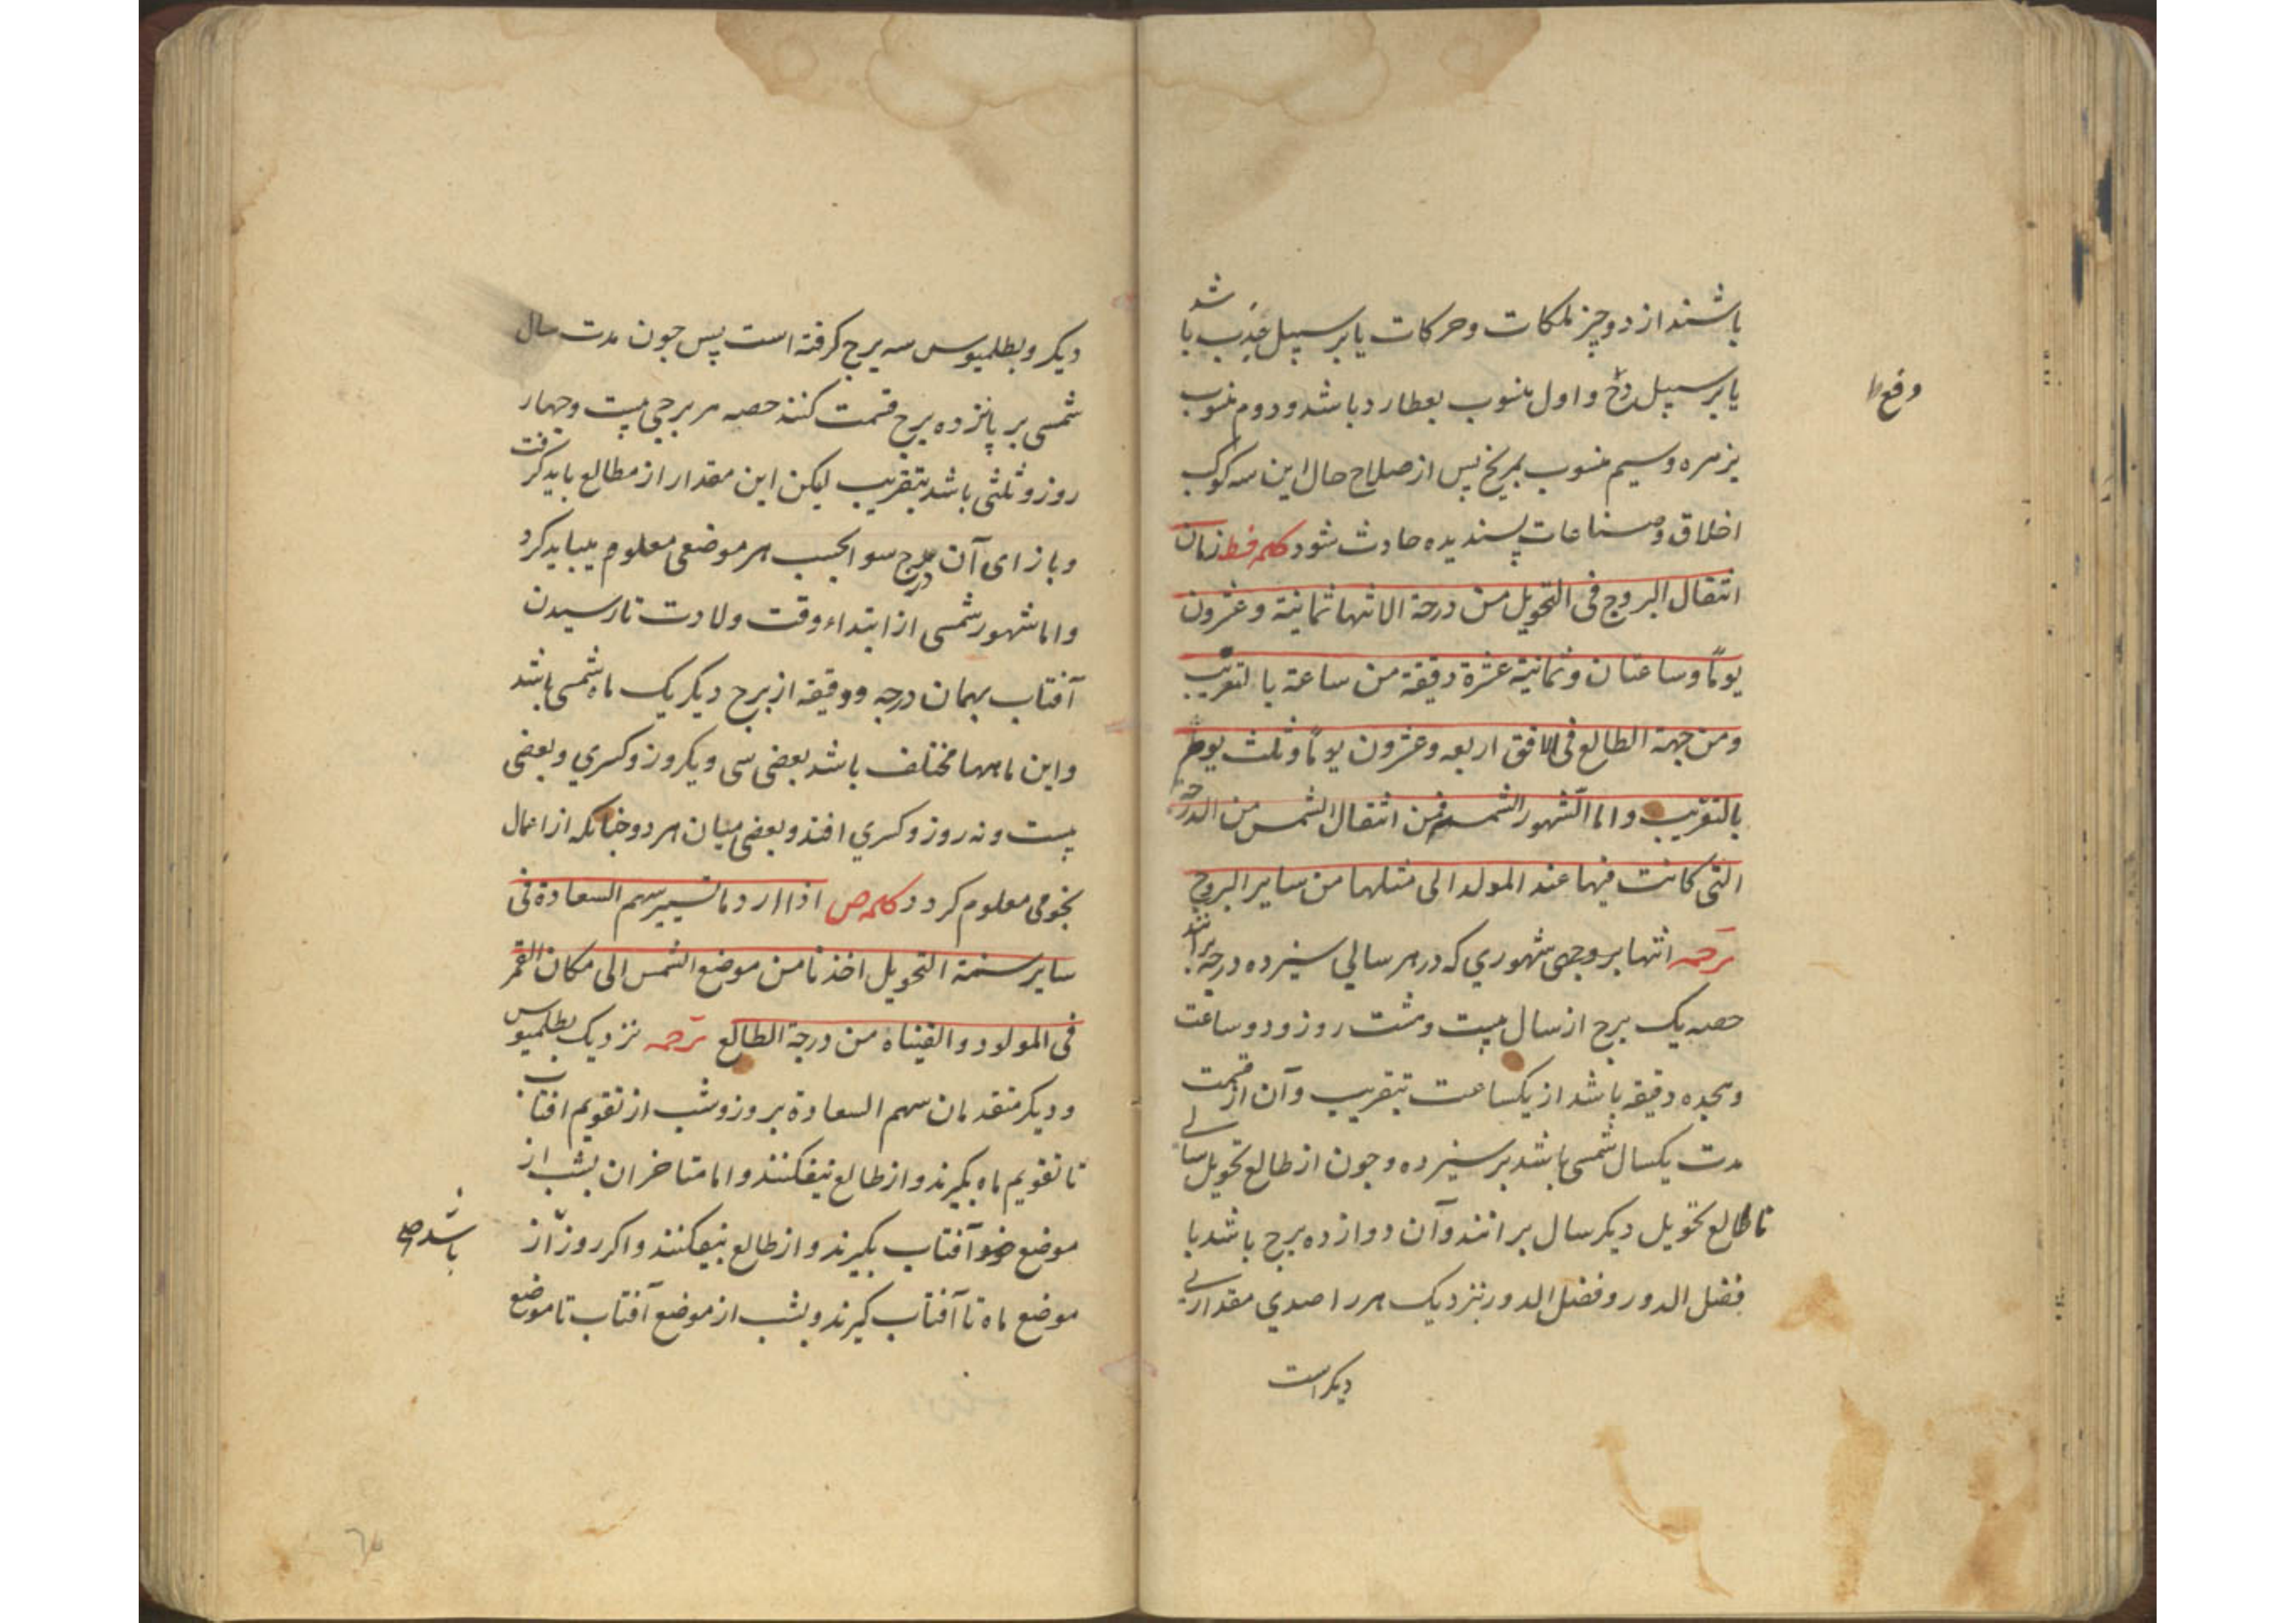 باشند از دو چیز ملکات و حرکات یا بر سبیل جذب باشد
یا بر سبیل دفع و اول منسوب بعطارد باشد و دوم منسوب
وقع
بزهره و سیم منسوب بمریخ پس از صلاح حال این سه کوکب
اخلاق و صناعات پسندیده حادث شود کلمه فط زمان
انتقال البروج فی التحویل من درجة الانتها ثمانیة و عشرون
یومًا و ساعتان و ثمانیة عشرة دقیقة من ساعة بالتقریب
ومن جهة الطالع فی الافق اربعه و عشرون یومًا و ثلث یوم
بالتقریب و اما الشهور الشمسیة فمن انتقال الشمس من الدرجة
التی کانت فیها عند المولد الی مثلها من سایر البروج
ترجمه انتها بروجی شهوری که در هر سالی سیزده درجه برانند
حصه یک برج از سال بیست و هشت روز و دو ساعت
و هجده دقیقه باشد از یکساعت بتقریب و آن از قسمت
مدت یکسال شمسی باشد بر سیزده و چون از طالع تحویل سالی
تا طالع تحویل دیکر سال برانند و آن دوازده برج باشد با
فضل الدور و فضل الدور بنزدیک هر راصدی مقداری
دیکر است
دیکر و بطلمیوس سه برج کرفته است پس چون مدت سال
شمسی بر پانزده برج قسمت کنند حصه هر برجی بیست و چهار
روز و ثلثی باشد بتقریب لیکن این مقدار از مطالع باید کرفت
و بازای آن درج سوا بحسب هر موضعی معلوم میباید کرد
و اما شهور شمسی از ابتداء وقت ولادت تا رسیدن
آفتاب بهمان درجه و دقیقه از برج دیکر یک ماه شمسی باشد
و این ماهها مختلف باشد بعضی سی و یکروز و کسری و بعضی
بیست و نه روز و کسری افتد و بعضی میان هر دو چنانکه از اعمال
نجومی معلوم کردد کلمه ص اذا اردنا تسییر سهم السعادة فی
سایر سنة التحویل اخذنا من موضع الشمس الی مکان القمر
فی المولود و القیناه من درجة الطالع ترجمه نزدیک بطلمیوس
و دیکر متقدمان سهم السعادة بروز و شب از تقویم افتاب
تا تقویم ماه بکیرند و از طالع بیفکنند و اما متاخران بشب از
موضع ضو آفتاب بکیرند و از طالع بیفکنند و اکر روز از
باشد صح
موضع ماه تا آفتاب کیرند و بشب از موضع آفتاب تا موضع